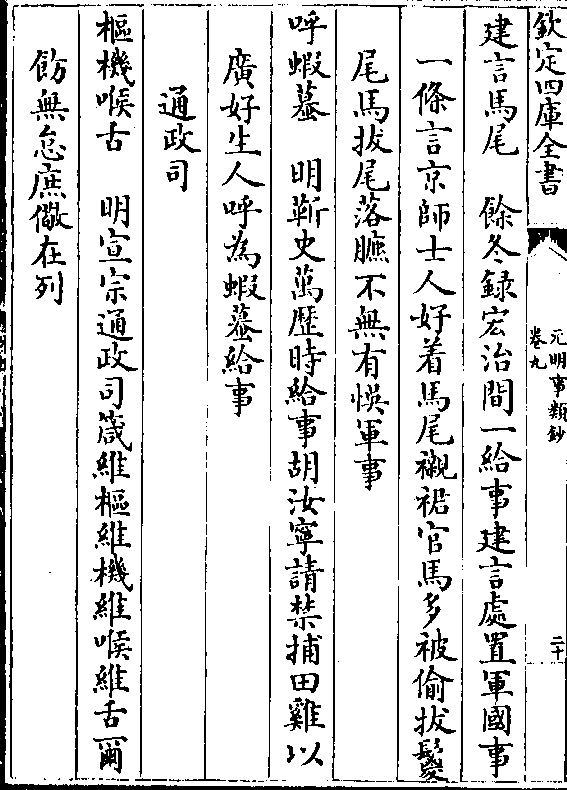 欽定四庫全書
元明事類鈔
卷九
二十
建言馬尾　餘冬録宏治間一給事建言處置軍國事
一條言京師士人好着馬尾襯裙官馬多被偷拔鬃
尾馬拔尾落膘不無有悞軍事
呼蝦蟇　明蘄史萬歷時給事胡汝寧請禁捕田雞以
廣好生人呼為蝦蟇給事
通政司
樞機喉古　明宣宗通政司箴維樞維機維喉維舌爾
飭無怠庶儆在列